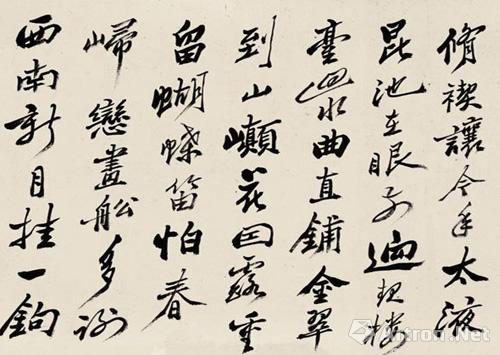 脩禊讓今年太液
昆池在眼前迴視樓
臺迴水曲直鋪金翠
到山巔花因露重
留蝴蝶笛怕春
歸戀畫船多謝
西南新月挂一鉤
Artron.Net